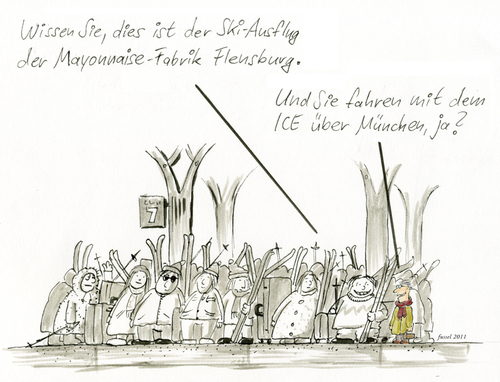 Wissen Sie, dies ist der Ski-Ausflug
der Mayonnaise-Fabrik Flensburg.
Und Sie fahren mit dem
ICE über München, ja?
Gleis
7
fussel 2011